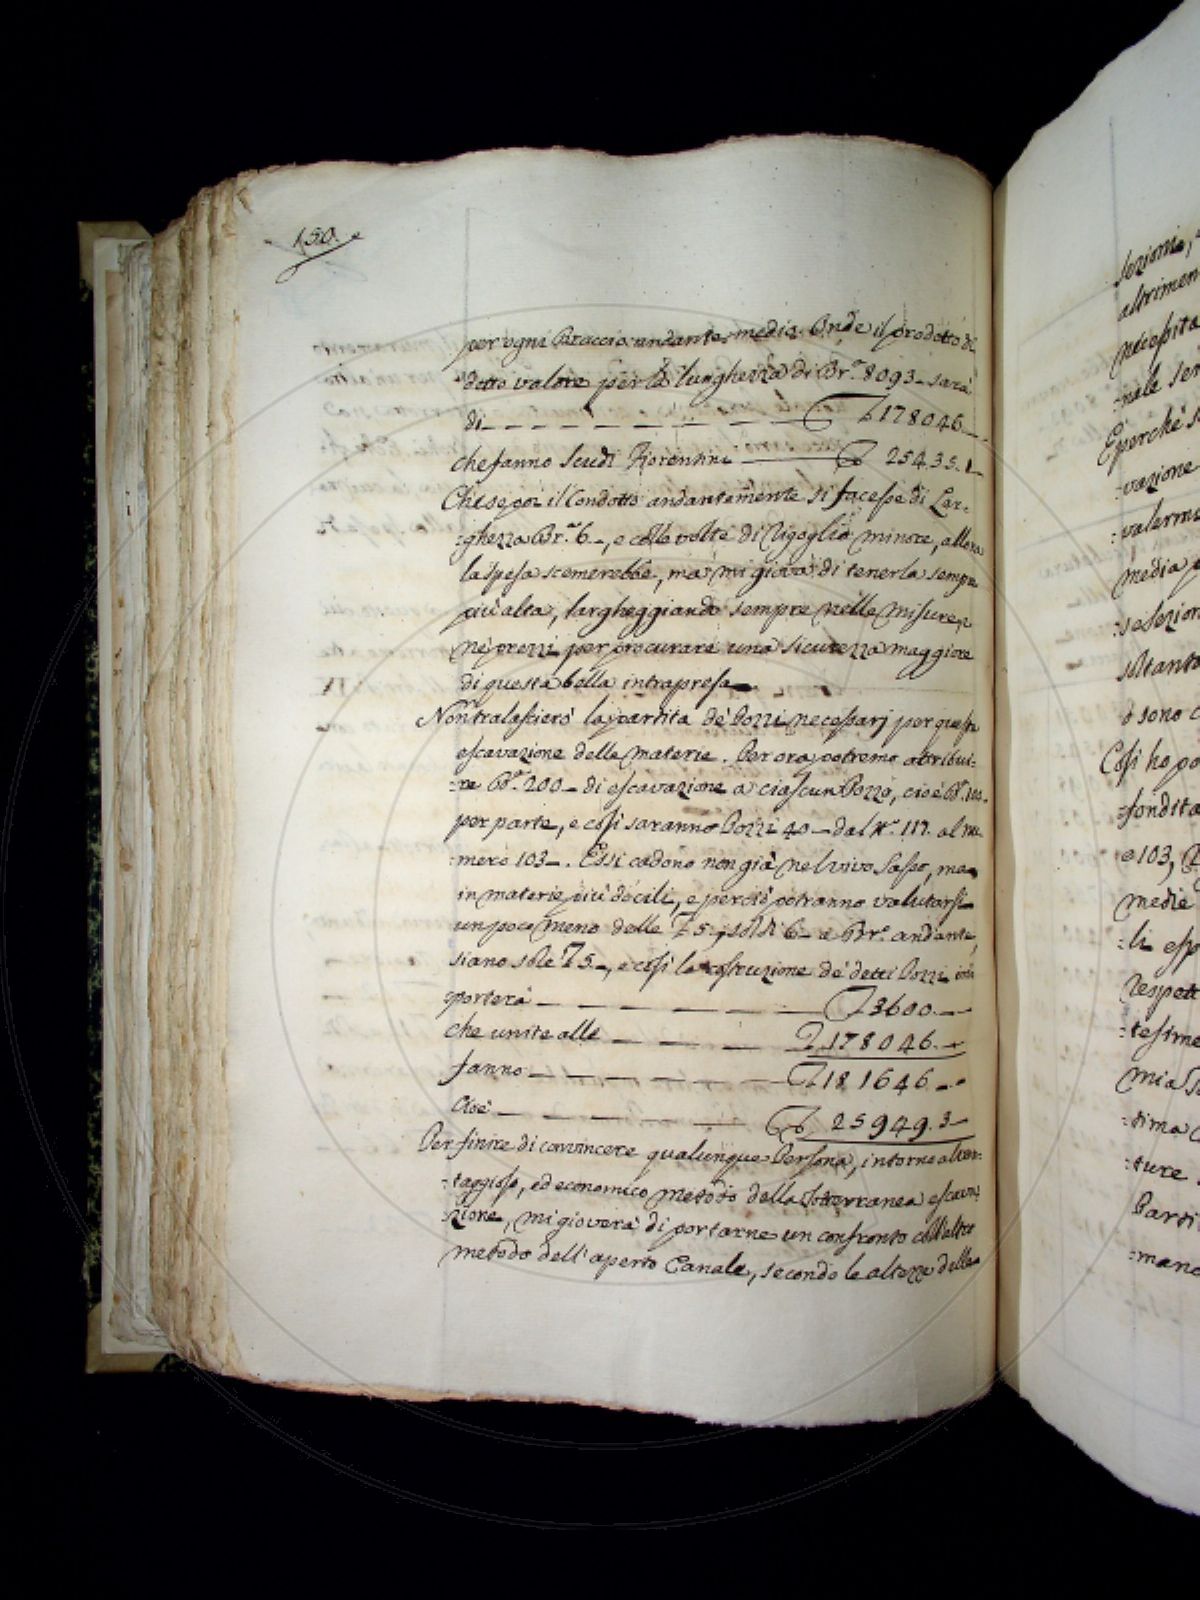 150.
per ogni Braccio andante media. Onde il prodotto di
detto valore per la lunghezza di Br.ª 8093 - sarà
di - - - - - - - £ 178046 -
che fanno Scudi Fiorentini — 25435.1 -
Che se poi il Condotto andantemente si facesse di Lar-
:ghezza Br.ª 6 -, e colle volte di Rigoglio minore, allora
la spesa scemerebbe, ma mi giova di tenerla sempre
più alta, largheggiando sempre nelle misure, e
ne' prezzi per procurare una sicurezza maggiore
di questa bella intrapresa.
Non tralascierò la partita de' Pozzi necessarj per questa
escavazione delle materie. Per ora potremo attribui-
:re Br.ª 200 - di escavazione a ciascun Pozzo, cioè Br.ª 100
per parte, e così saranno Pozzi 40 - dal N.º 117. al nu-
:mero 103 -. Essi cadono non già nel vivo Sasso, ma
in materie più docili, e perciò potranno valutarsi
un poco meno delle £ 5., soldi 6 - a Br.º andante,
siano sole £ 5 -, e così la costruzione de' detti Pozzi im
:porterà - - - - - £ 3600 . -
che unite alle - - - - £ 178046 . -
fanno - - - - - - £ 181646 . -
Cioè - - - - - - 25949.3 -
Per finire di convincere qualunque Persona, intorno al van-
:taggioso, ed economico metodo della Sotterranea escava-
:zione, mi gioverà di portarne un confronto coll'altro
metodo dell'aperto Canale, secondo le altezze delle
Sezioni,
altrimen
necessita
:nale
E perchè
:vazione
valermi
media
:se Sezion
soltanto
o sono
Così ho po
:fondita
e 103,
medie
:li esp
respett
:tesime
mia
:sima
:ture
Parti
:mano